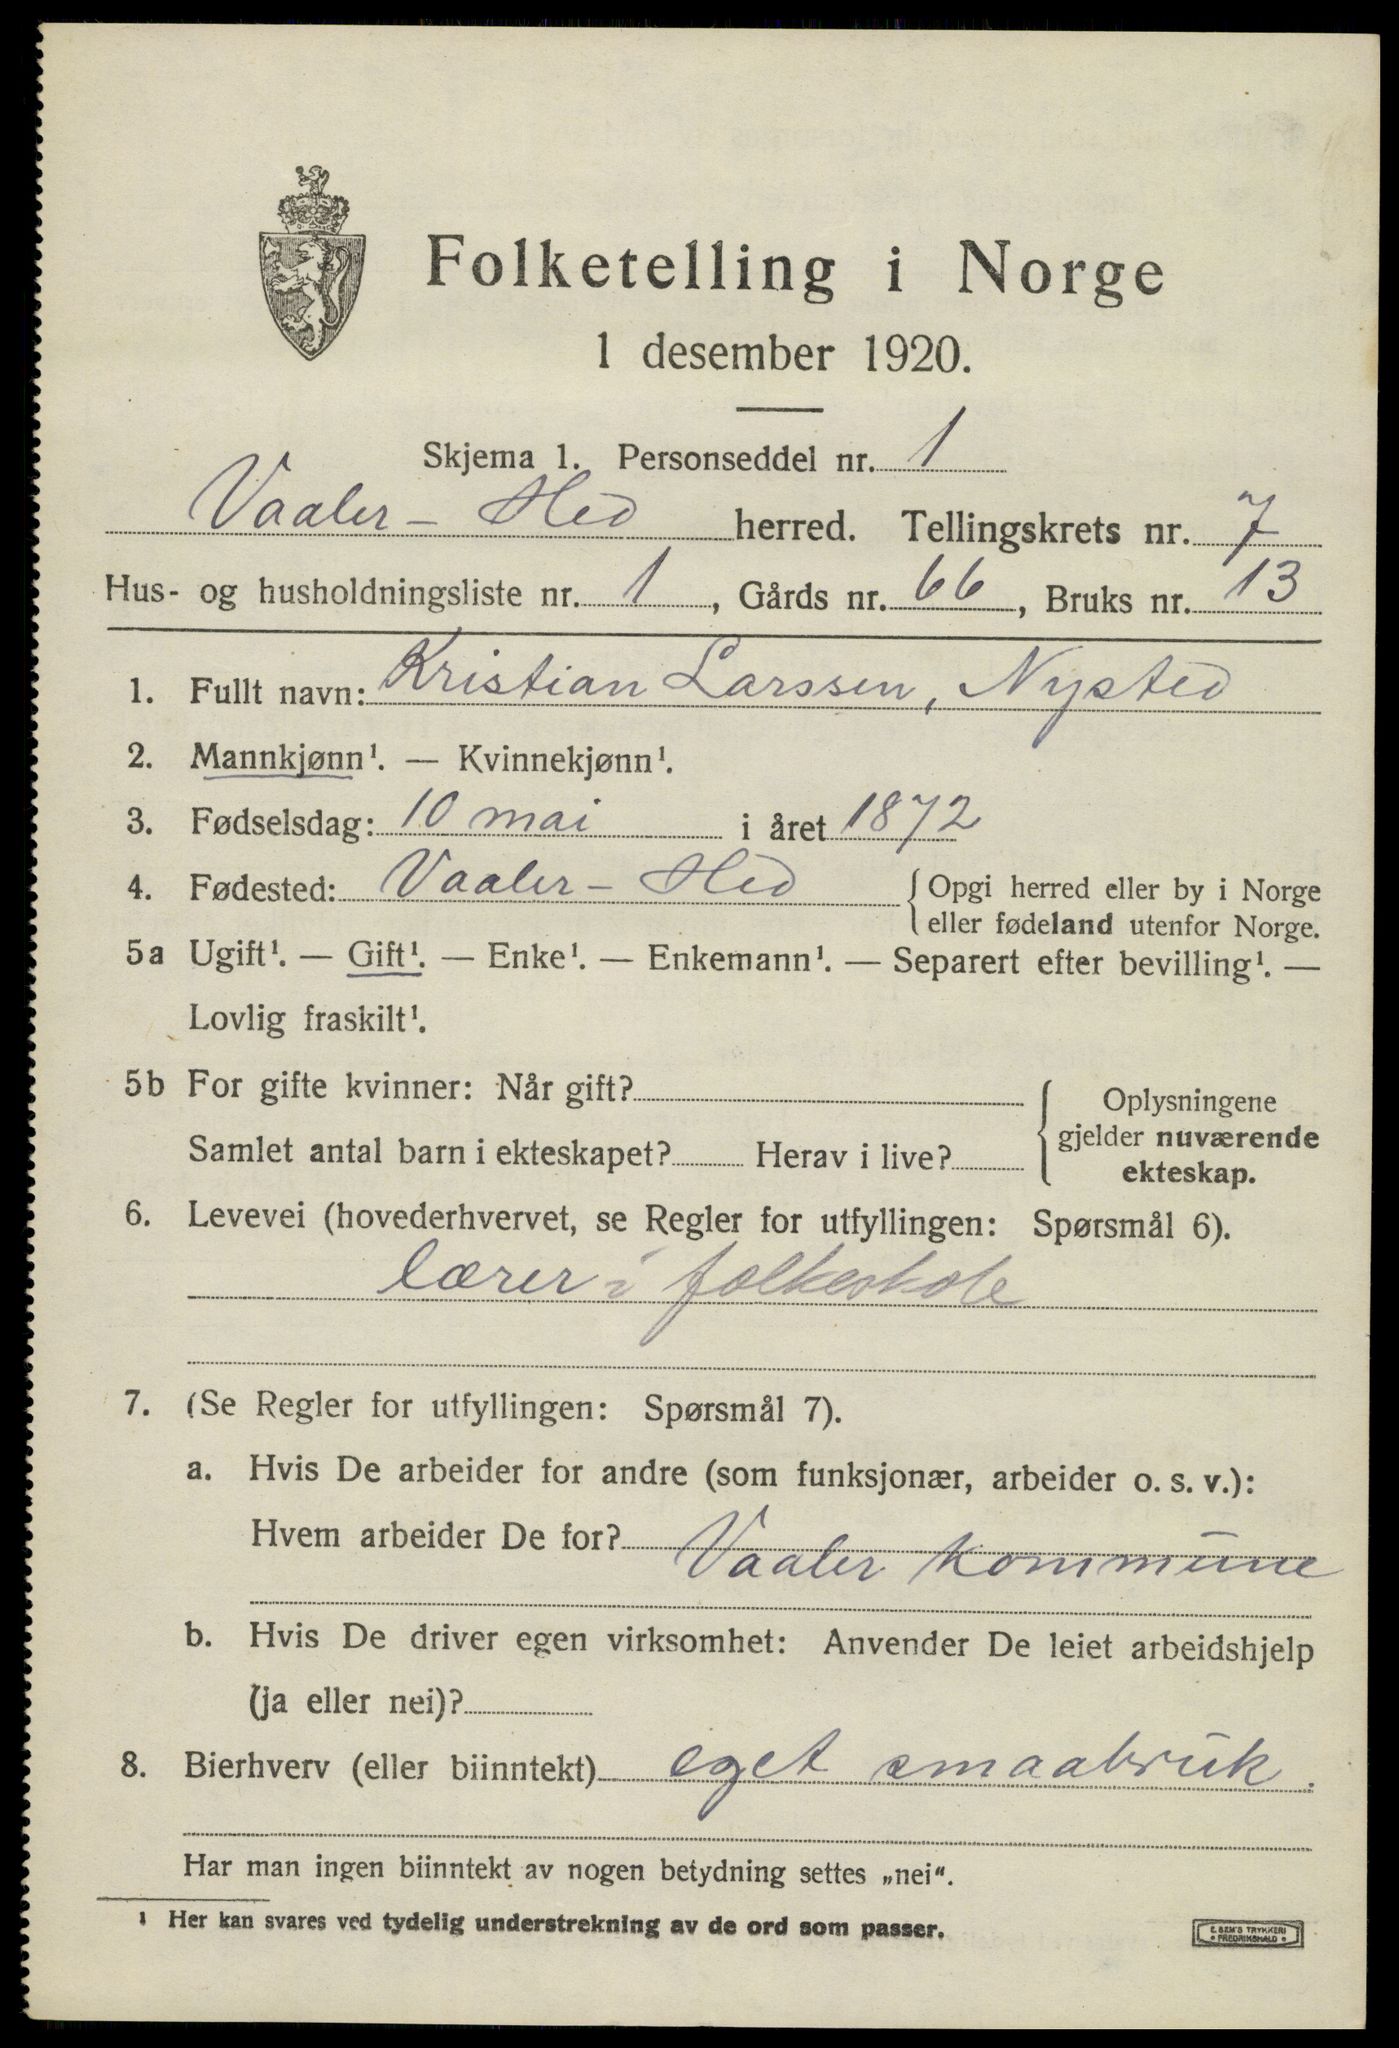 Folketelling i Norge
1 desember 1920.
Skjema 1. Personseddel nr. 1
Vaaler - Hed herred. Tellingskrets nr. 7
Hus- og husholdningsliste nr. 1, Gårds nr. 66, Bruks nr. 13
1. Fullt navn: Kristian Larssen, Nysted
2. Mannkjønn¹. — Kvinnekjønn¹.
3. Fødselsdag: 10 mai i året 1872
4. Fødested: Vaaler - Hed { Opgi herred eller by i Norge
eller fødeland utenfor Norge.
5a Ugift¹. — Gift¹. — Enke¹. — Enkemann¹. — Separert efter bevilling¹. —
Lovlig fraskilt¹.
5b For gifte kvinner: Når gift? { Oplysningene
gjelder nuværende
Samlet antal barn i ekteskapet? Herav i live?
ekteskap.
6. Levevei (hovederhvervet, se Regler for utfyllingen: Spørsmål 6).
lærer i folkeskole
7. (Se Regler for utfyllingen: Spørsmål 7).
a. Hvis De arbeider for andre (som funksjonær, arbeider o. s. v.):
Hvem arbeider De for? Vaaler kommune
b. Hvis De driver egen virksomhet: Anvender De leiet arbeidshjelp
(ja eller nei)?
8. Bierhverv (eller biinntekt) eget smaabruk.
Har man ingen biinntekt av nogen betydning settes „nei“.
¹ Her kan svares ved tydelig understrekning av de ord som passer.
E. SEM'S TRYKKERI
• FREDRIKSHALD •